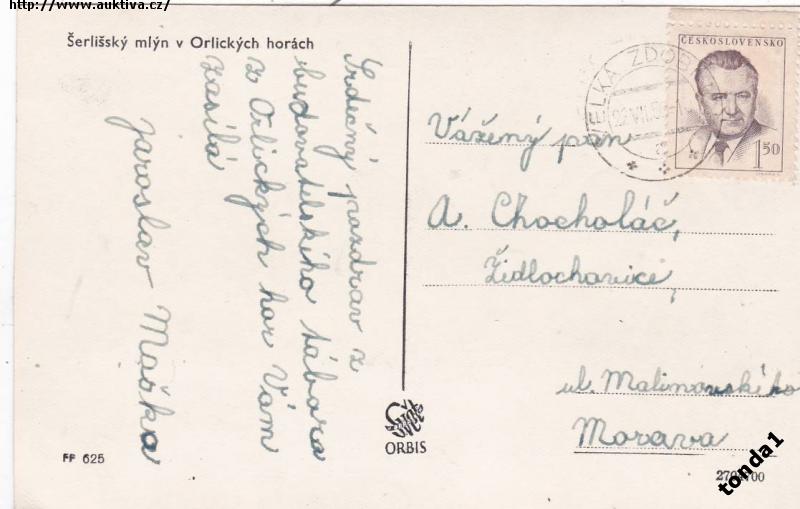 http://www.auktiva.cz/
Šerlišský mlýn v Orlických horách
Srdečný pozdrav z
budovatelského tábora
z Orlických hor Vám
zasílá
Jaroslav Maška
FF 625
ORBIS
ČESKOSLOVENSKO
1.50
VELKÁ ZDOB
Vážený pan
A. Chocholáč,
Židlochovice,
ul. Malinovského
Morava
tonda1